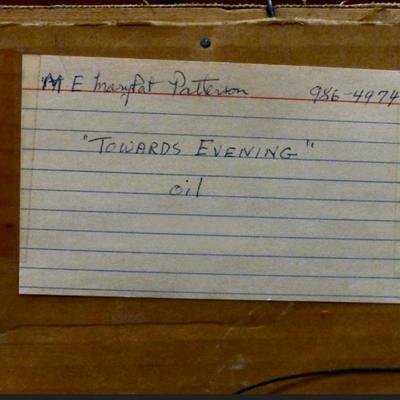 M E MaryPat Patterson 986-4974
"TOWARDS EVENING"
oil